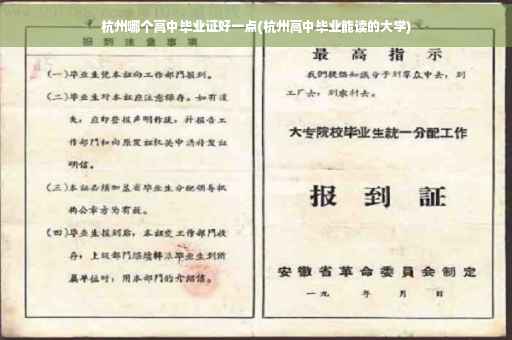 杭州哪个高中毕业证好一点(杭州高中毕业能读的大学)
报到注意事项
(一)毕业生凭本证向工作部门报到。
(二)毕业生对本证应注意保存。如有遗
失,应即登报声明作废,并报告工
作部门和向原发证机关申请补发证
明信。
(三)本证必须加盖省毕业生分配领导机
构公章方为有效。
(四)毕业生报到后,本证交工作部门收
存;上级部门
毕业生到所
属单位时,用本部门的介绍信。
最高指示
我们提倡知识分子到群众中去,到
工厂去,到农村去。
大专院校毕业生统一分配工作
报到证
安徽省革命委员会制定
一九 年 月 日